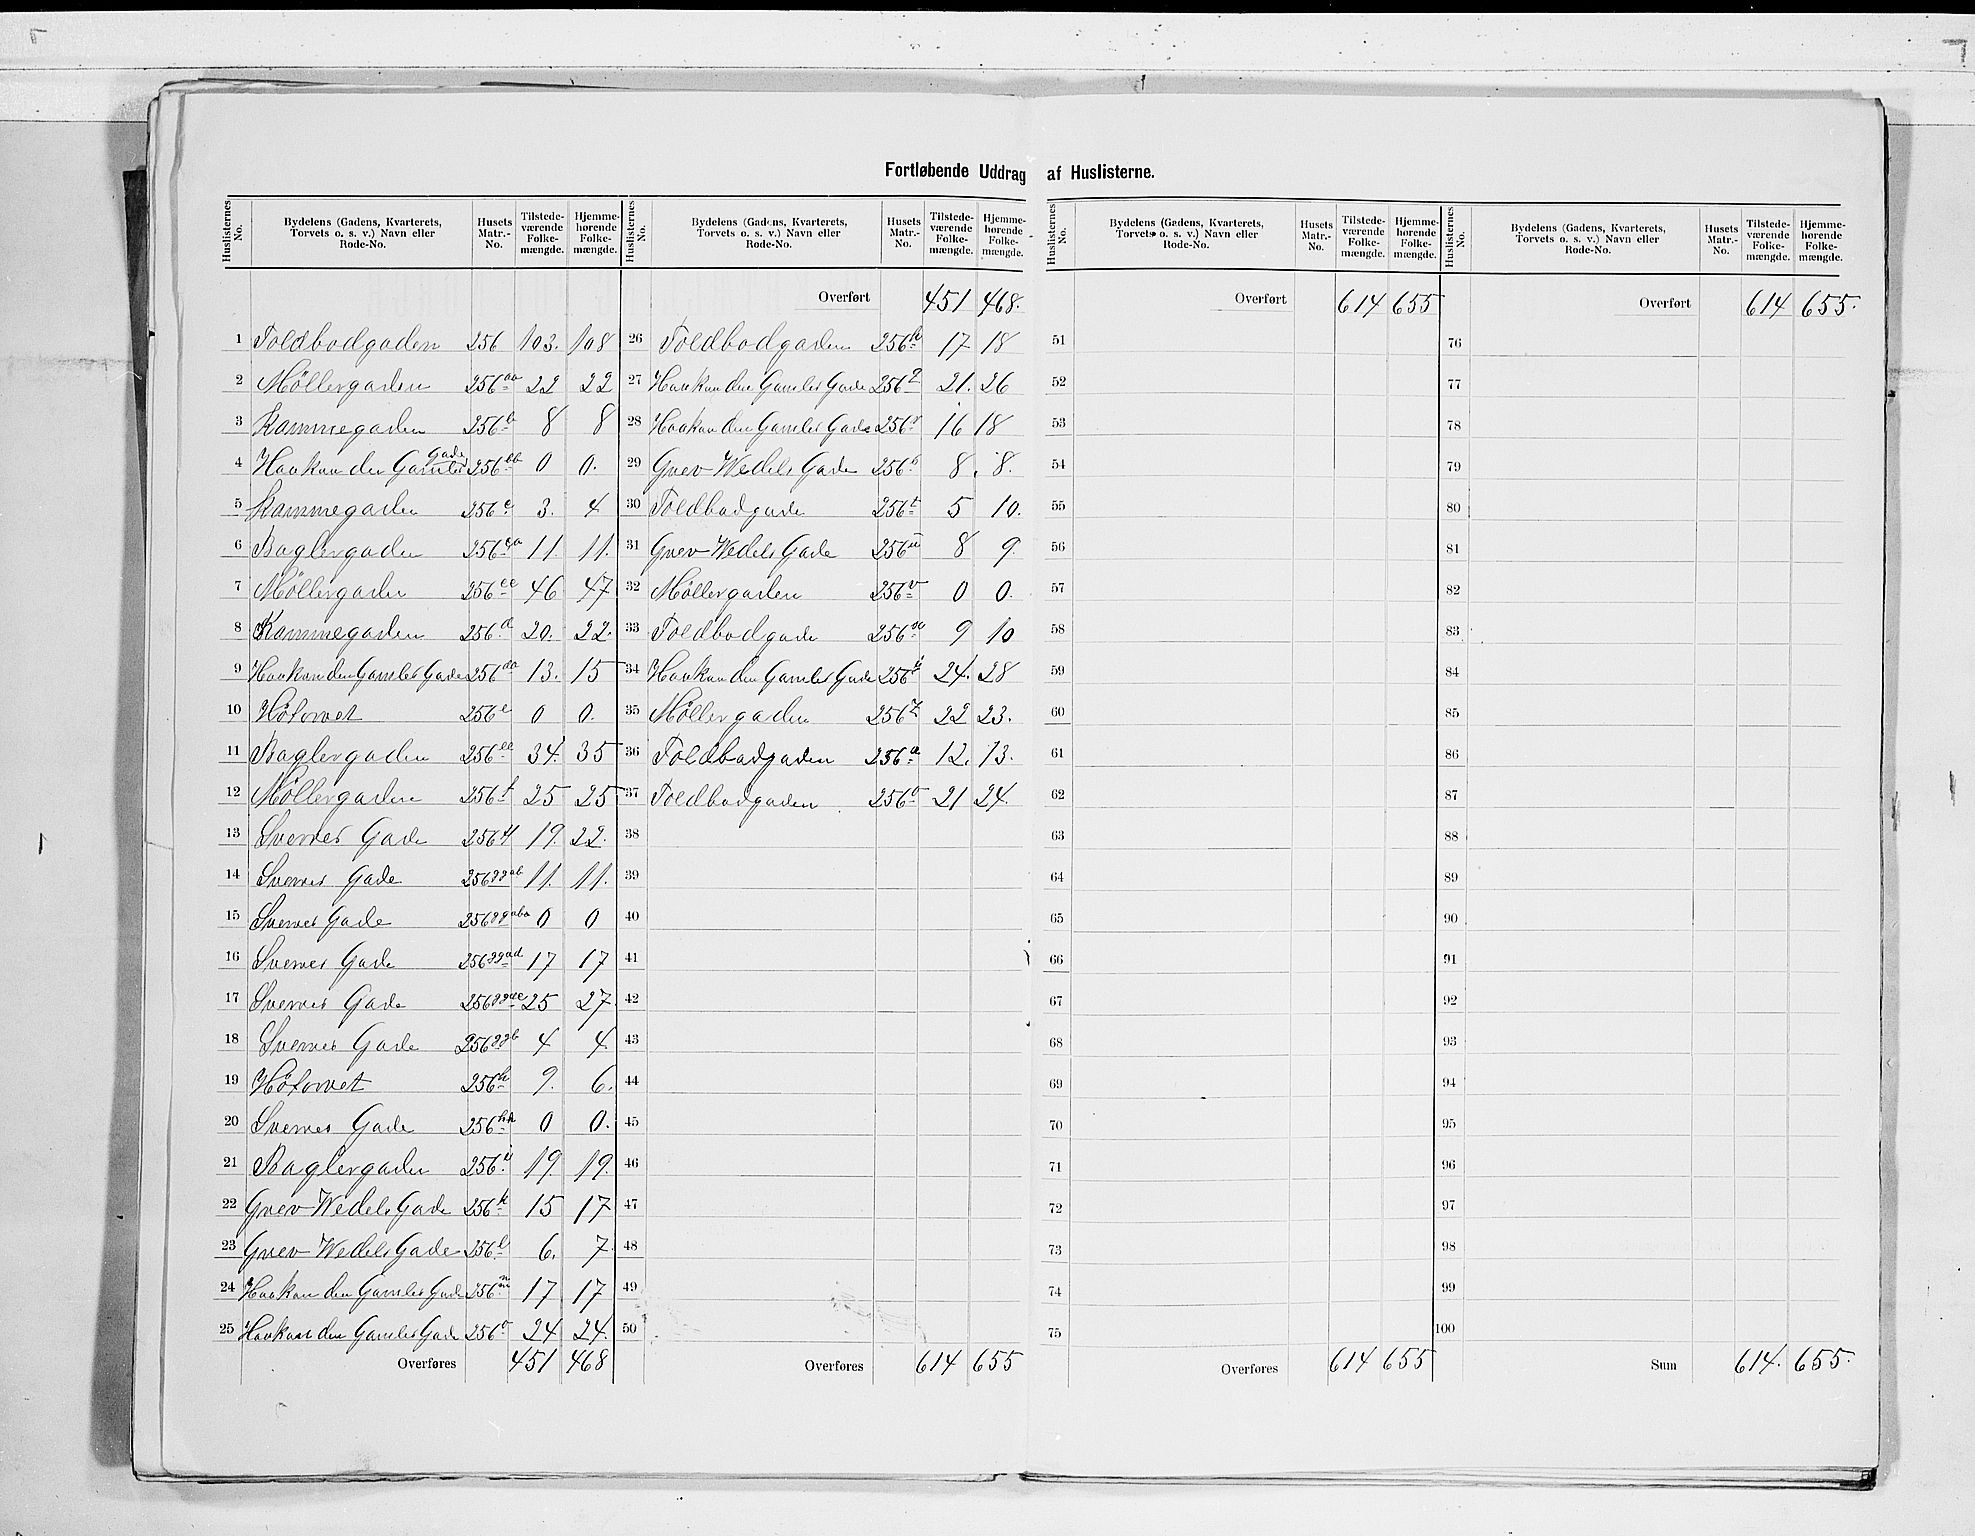 Fortløbende Uddrag af Huslisterne.
Huslisternes No. | Bydelens (Gadens, Kvarterets, Torvets o. s. v.) Navn eller Rode-No. | Husets Matr.-No. | Tilstedeværende Folkemængde. | Hjemmehørende Folkemængde.
1 Toldbodgaden 256 103. 108
2 Møllergaden 256 aa 22 22
3 Kammegaden 256 b 8 8
4 Haakan den Gamles Gade 256 bb 0 0.
5 Kammegaden 256 c 3. 4
6 Baglergaden 256 ca 11. 11.
7 Møllergaden 256 cc 46 47
8 Kammegaden 256 d 20. 22.
9 Haakan den Gamles Gade 256 da 13. 15
10 Høtorvet 256 e 0 0.
11 Baglergaden 256 ee 34. 35
12 Møllergaden 256 f 25 25
13 Sverres Gade 256 ff 19. 22.
14 Sverres Gade 256 gg ab 11. 11.
15 Sverres Gade 256 gg aba 0 0
16 Sverres Gade 256 gg ad 17 17
17 Sverres Gade 256 gg ae 25 27
18 Sverres Gade 256 gg b 4 4
19 Høtorvet 256 h 9. 6.
20 Sverres Gade 256 hh 0 0.
21 Baglergaden 256 i 19. 19.
22 Grev Wedels Gade 256 k 15 17
23 Grev Wedels Gade 256 l 6. 7
24 Haakan den Gamles Gade 256 m 17 17
25 Haakan den Gamles Gade 256 o 24 24.
Overføres 451 468
Huslisternes No. | Bydelens (Gadens, Kvarterets, Torvets o. s. v.) Navn eller Rode-No. | Husets Matr.-No. | Tilstedeværende Folkemængde. | Hjemmehørende Folkemængde.
Overført 451 468.
26 Toldbodgaden 256 17 18
27 Haakan den Gamles Gade 256 q 21. 26
28 Haakan den Gamles Gade 256 r 16 18
29 Grev Wedels Gade 256 s 8. 8.
30 Toldbodgade 256 t 5 10.
31 Grev Wedels Gade 256 u 8 9.
32 Møllergaden 256 v 0 0.
33 Toldbodgade 256 9 10
34 Haakan den Gamles Gade 256 24. 28
35 Møllergaden 256 22 23.
36 Toldbodgaden 256 12. 13.
37 Toldbodgaden 256 21 24.
38
39
40
41
42
43
44
45
46
47
48
49
50
Overføres 614 655
Huslisternes No. | Bydelens (Gadens, Kvarterets, Torvets o. s. v.) Navn eller Rode-No. | Husets Matr.-No. | Tilstedeværende Folkemængde. | Hjemmehørende Folkemængde.
Overført 614 655
51
52
53
54
55
56
57
58
59
60
61
62
63
64
65
66
67
68
69
70
71
72
73
74
75
Overføres 614 655
Huslisternes No. | Bydelens (Gadens, Kvarterets, Torvets o. s. v.) Navn eller Rode-No. | Husets Matr.-No. | Tilstedeværende Folkemængde. | Hjemmehørende Folkemængde.
Overført 614 655.
76
77
78
79
80
81
82
83
84
85
86
87
88
89
90
91
92
93
94
95
96
97
98
99
100
Sum 614. 655.